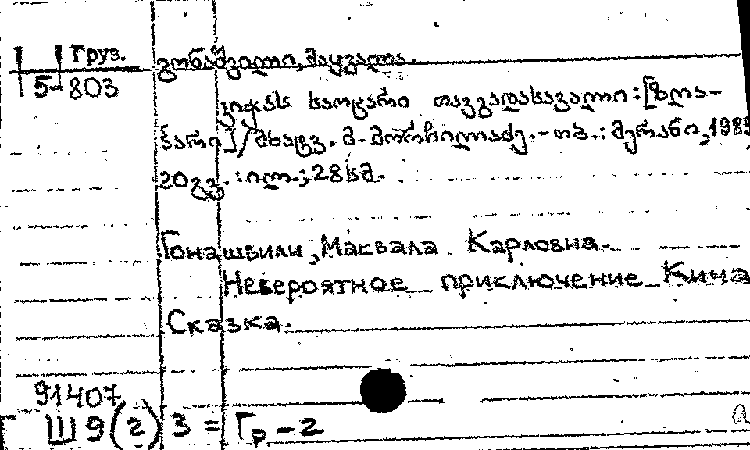 Груз.
5-803
გონაშვილი, მაყვალა.
კიჭას საოცარი თავგადასავალი: [ზღა-
პარი] / მხატვ. მ. მორჩილაძე. - თბ.: მერანი, 1985
20გვ.: ილ.; 28სმ.
Гонашвили, Маквала Карловна.
Невероятное приключение Кича
Сказка.
91407
Ш 9(2) 3 = Гр - 2